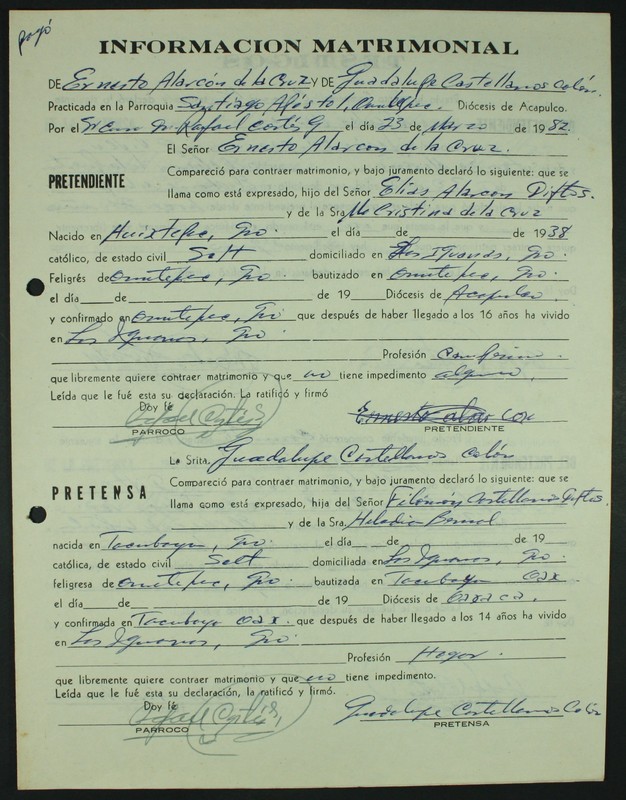 pagó
INFORMACION MATRIMONIAL
DE Ernesto Alarcón de la Cruz Y DE Guadalupe Castellanos Colón.
Practicada en la Parroquia Santiago Apóstol, Ometepec. Diócesis de Acapulco.
Por el Sr Cura Dn Rafael Cortés G el día 23 de Marzo de 1982.
El Señor Ernesto Alarcon de la Cruz.
PRETENDIENTE
Compareció para contraer matrimonio, y bajo juramento declaró lo siguiente: que se
llama como está expresado, hijo del Señor Elías Alarcon Diftos.
y de la Sra. Ma Cristina de la Cruz
Nacido en Huixtepec, Gro. el día de de 1938
católico, de estado civil Solt domiciliado en Las Iguanas, Gro.
Feligrés de Ometepec, Gro bautizado en Ometepec, Gro.
el día de de 19 Diócesis de Acapulco.
y confirmado en Ometepec, Gro que después de haber llegado a los 16 años ha vivido
en Las Iguanas, Gro.
Profesión Campesino.
que libremente quiere contraer matrimonio y que no tiene impedimento alguno.
Leída que le fué esta su declaración. La ratificó y firmó
Doy fé
PARROCO
Ernesto alar con
PRETENDIENTE
La Srita. Guadalupe Castellanos Colón
PRETENSA
Compareció para contraer matrimonio, y bajo juramento declaró lo siguiente: que se
llama como está expresado, hija del Señor Filemón Castellanos Diftos.
y de la Sra. Heladia Bernal
nacida en Tacubaya, Gro. el día de de 19
católica, de estado civil Solt domiciliada en Las Iguanas, Gro.
feligresa de Ometepec, Gro. bautizada en Tacubaya Oax
el día de de 19 Diócesis de Oaxaca.
y confirmada en Tacubaya Oax. que después de haber llegado a los 14 años ha vivido
en Las Iguanas, Gro.
Profesión Hogar.
que libremente quiere contraer matrimonio y que no tiene impedimento.
Leída que le fué esta su declaración, la ratificó y firmó.
Doy fé
PARROCO
Guadalupe Castellanos Colón
PRETENSA